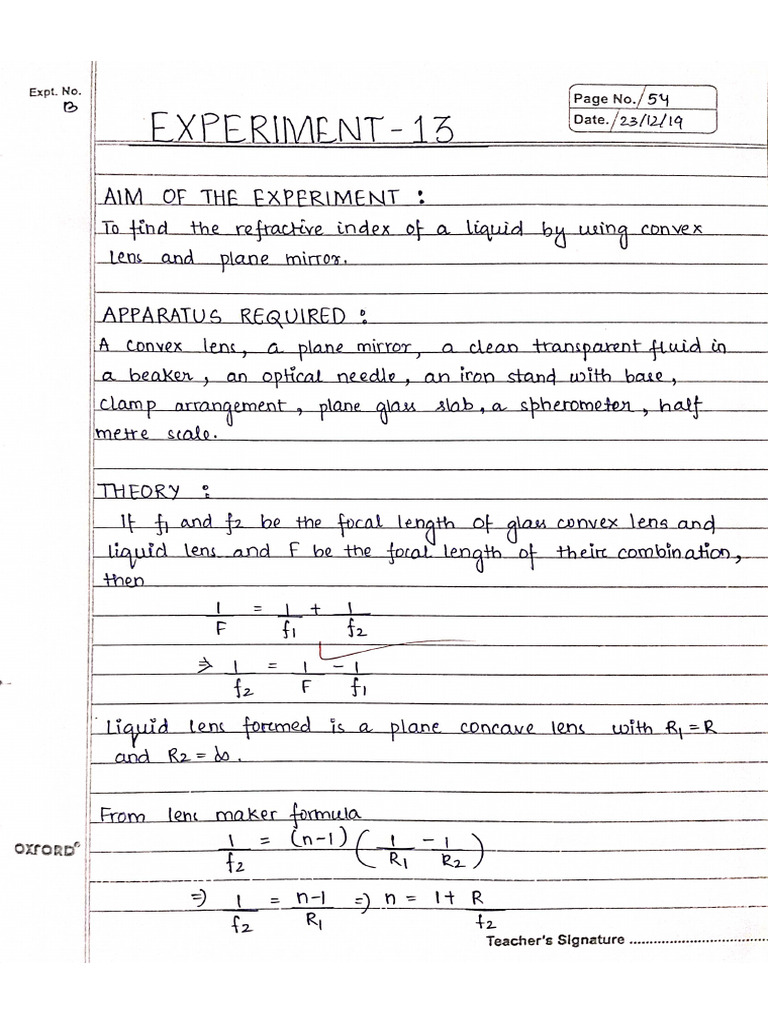 Expt. No.
13
Page No. 54
Date. 23/12/19
EXPERIMENT - 13
AIM OF THE EXPERIMENT :
To find the refractive index of a liquid by using convex
lens and plane mirror.
APPARATUS REQUIRED :
A convex lens, a plane mirror, a clean transparent fluid in
a beaker, an optical needle, an iron stand with base,
clamp arrangement, plane glass slab, a spherometer, half
metre scale.
THEORY :
If f1 and f2 be the focal length of glass convex lens and
liquid lens and F be the focal length of their combination,
then
1/F = 1/f1 + 1/f2
⇒ 1/f2 = 1/F - 1/f1
Liquid lens formed is a plane concave lens with R1 = R
and R2 = ∞.
From lens maker formula
1/f2 = (n-1) (1/R1 - 1/R2)
⇒ 1/f2 = n-1/R1 ⇒ n = 1 + R/f2
OXFORD
Teacher's Signature